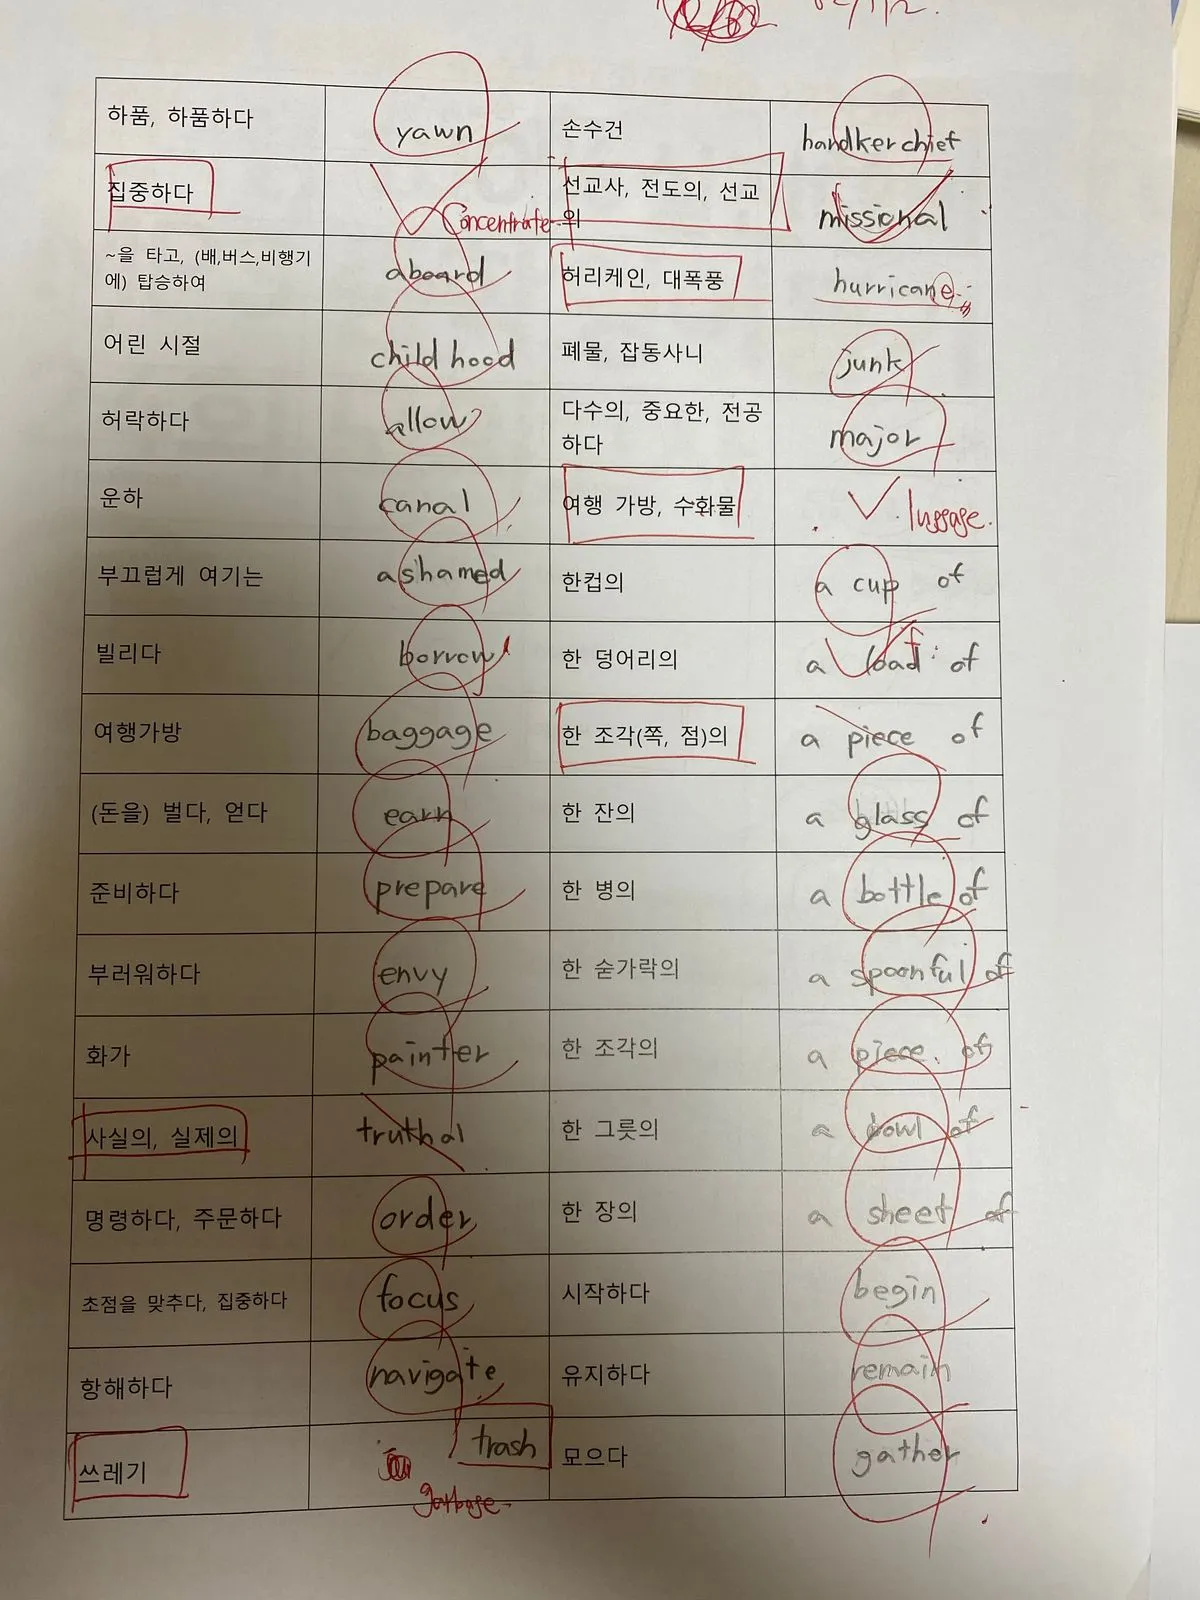 하품, 하품하다 yawn 손수건 handkerchief
집중하다 Concentrate 선교사, 전도의, 선교
의 missional
~을 타고, (배,버스,비행기
에) 탑승하여 aboard 허리케인, 대폭풍 hurricane
어린 시절 child hood 폐물, 잡동사니 junk
허락하다 allow 다수의, 중요한, 전공
하다 major
운하 canal 여행 가방, 수화물 luggage.
부끄럽게 여기는 ashamed 한컵의 a cup of
빌리다 borrow 한 덩어리의 a load of
여행가방 baggage 한 조각(쪽, 점)의 a piece of
(돈을) 벌다, 얻다 earn 한 잔의 a glass of
준비하다 prepare 한 병의 a bottle of
부러워하다 envy 한 숟가락의 a spoonful of
화가 painter 한 조각의 a piece of
사실의, 실제의 truthal 한 그릇의 a bowl of
명령하다, 주문하다 order 한 장의 a sheet of
초점을 맞추다, 집중하다 focus 시작하다 begin
항해하다 navigate 유지하다 remain
쓰레기 trash 모으다 gather
garbage